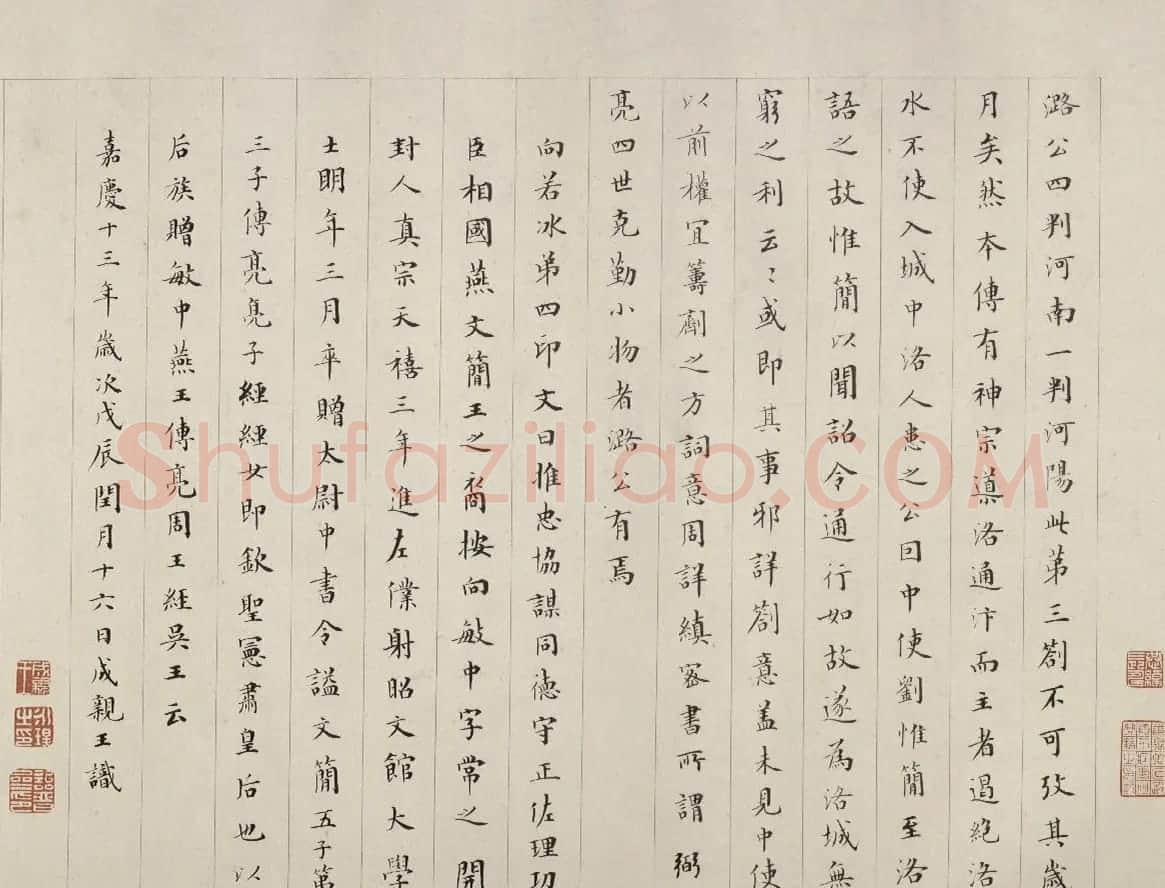 潞公四判河南一判河陽此第三劄不可攷其歲
月矣然本傳有神宗導洛通汴而主者遏絶洛
水不使入城中洛人患之公回中使劉惟簡至洛
語之故惟簡以聞詔令通行如故遂為洛城無
窮之利云〻或即其事邪詳劄意盖未見中使
以前權宜籌劑之方詞意周詳縝密書所謂弼
亮四世克勤小物者潞公有焉
向若冰弟四印文曰推忠協謀同德守正佐理功
臣相國燕文簡王之裔按向敏中字常之開
封人真宗天禧三年進左僕射昭文館大學
士明年三月卒贈太尉中書令謚文簡五子第
三子傳亮亮子經經女即欽聖憲肅皇后也以
后族贈敏中燕王傳亮周王經吳王云
嘉慶十三年歲次戊辰閏月十六日成親王識
Shufaziliao.com